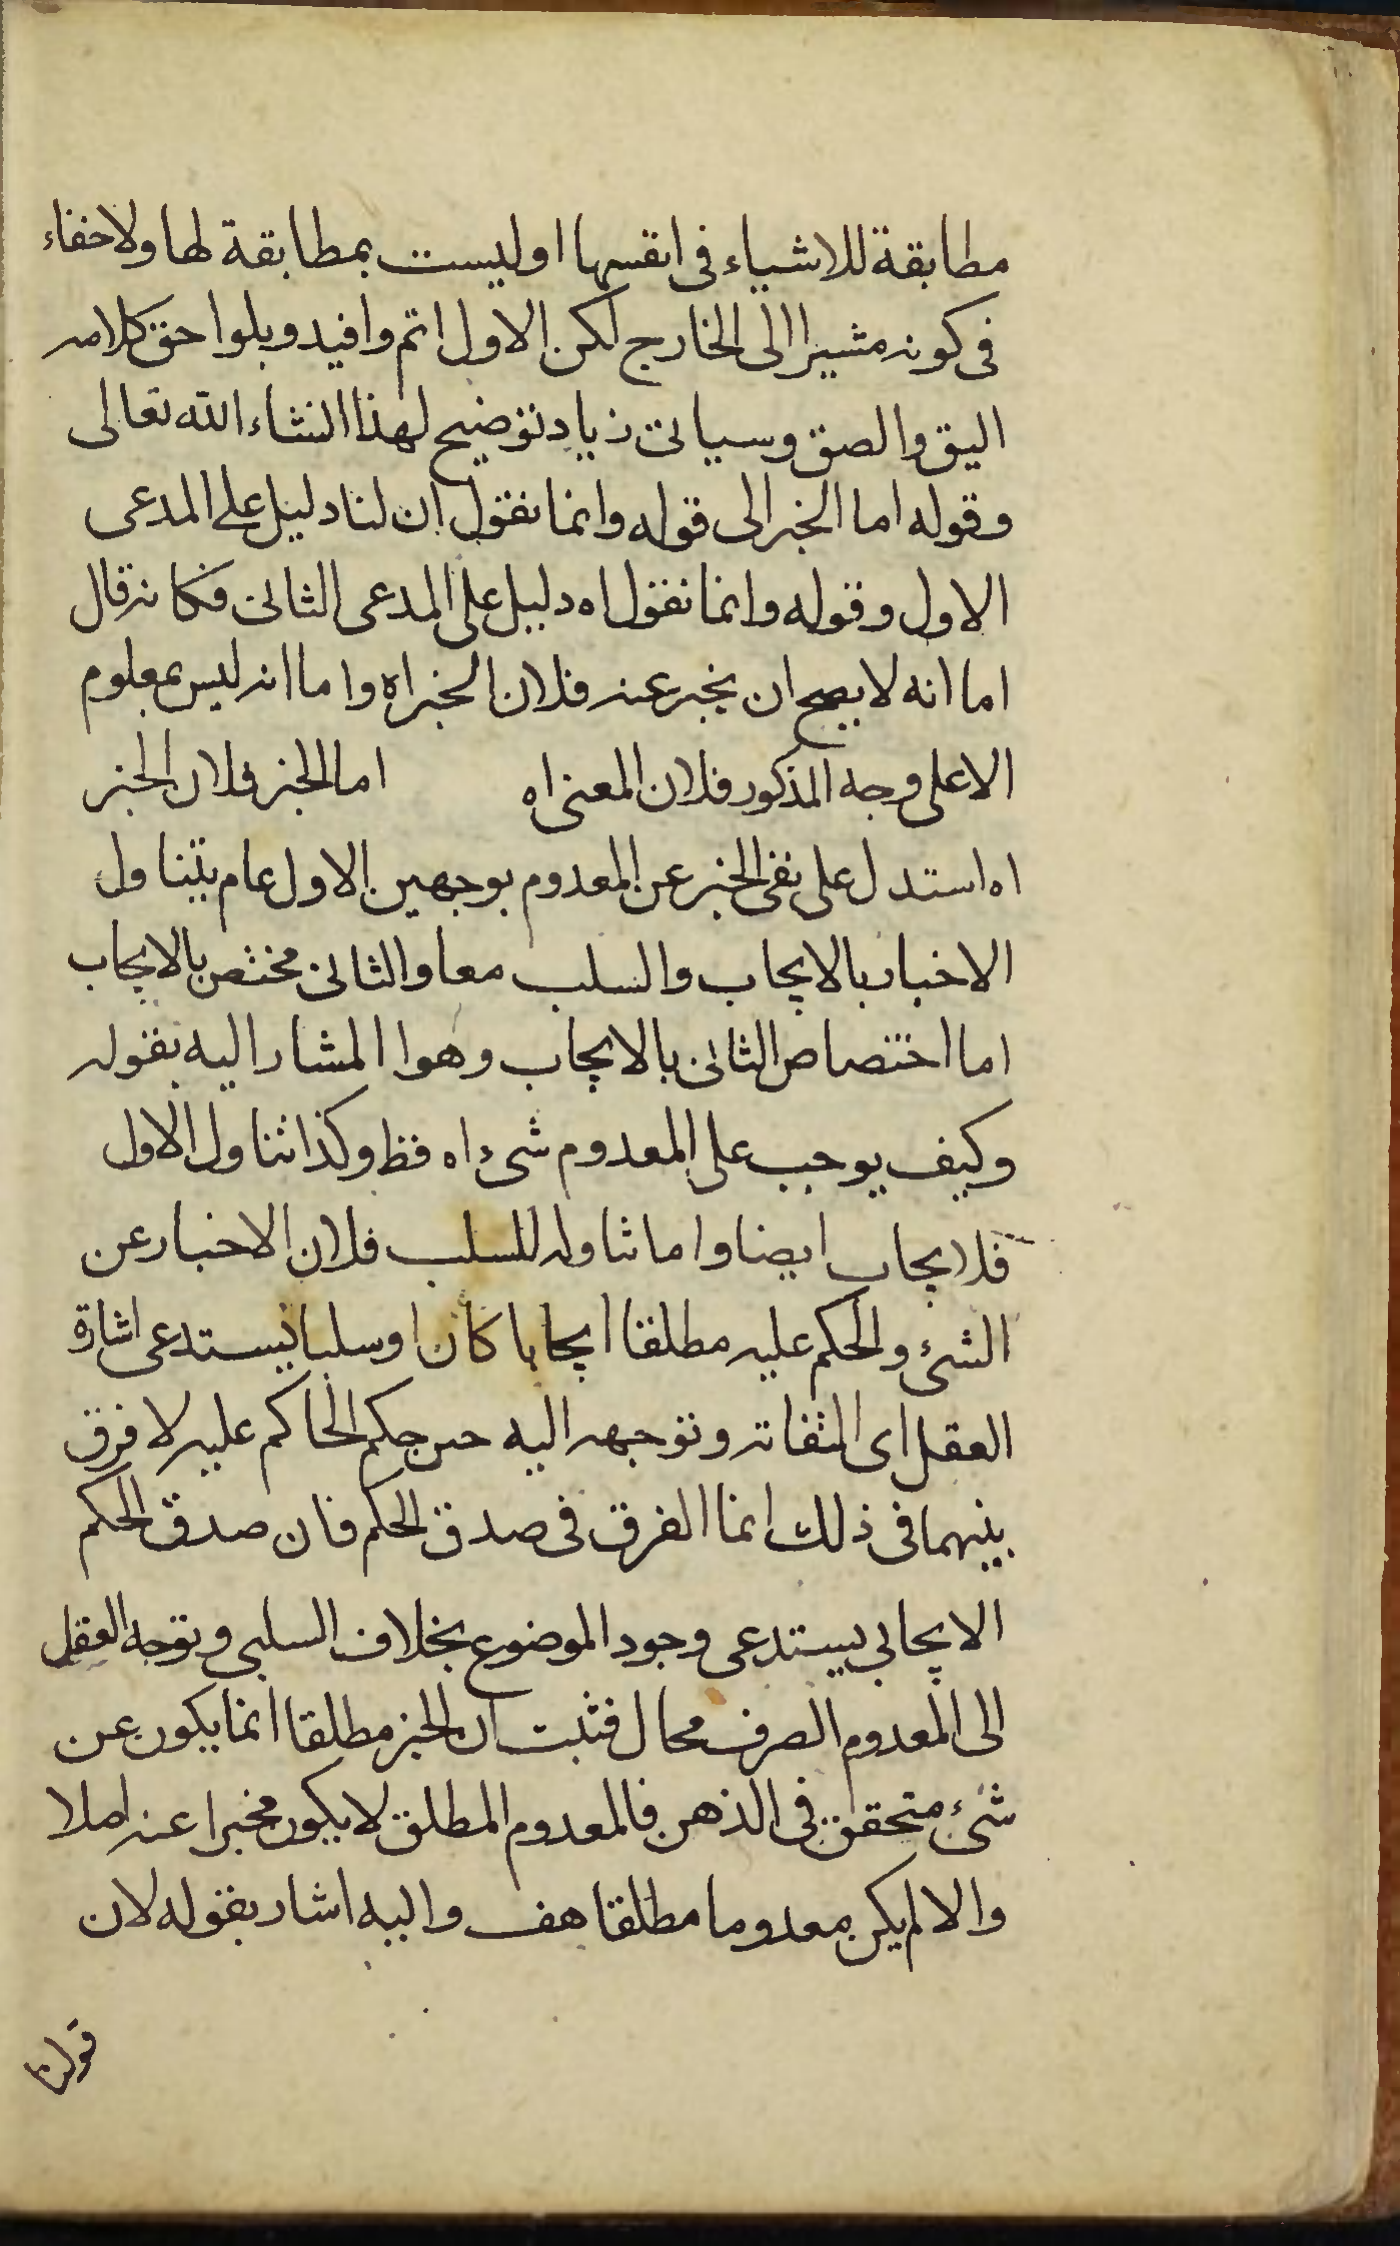 مطابقة للاشياء فى انفسها او ليست بمطابقة لها ولا خفاء
فى كونه مشيرا الى الخارج لكن الاول اتم وافيد وبلواحق كلامه
اليق والصق وسياتى زياد توضيح لهذا انشاء الله تعالى
وقوله اما الخبر الى قوله وانما نقول ان لنا دليل على المدعى
الاول وقوله وانما نقول اه دليل على المدعى الثانى فكانه قال
اما انه لا يصح ان يخبر عنه فلان الخبر اه واما انه ليس بمعلوم
الا على وجه المذكور فلان المعنى اه اما الخبر فلان الخبر
اه استدل على نفى الخبر عن المعدوم بوجهين الاول عام يتناول
الاخبار بالايجاب والسلب معا والثانى مختص بالايجاب
اما اختصاص الثانى بالايجاب وهو المشار اليه بقوله
وكيف يوجب على المعدوم شىء اه فظ وكذا تناول الاول
فلايجاب ايضا واما تناوله للسلب فلان الاخبار عن
الشىء والحكم عليه مطلقا ايجابا كان او سلبا يستدعى اشارة
العقل اى التفاته وتوجهه اليه حين حكم الحاكم عليه لا فرق
بينهما فى ذلك انما الفرق فى صدق الحكم فان صدق الحكم
الايجابى يستدعى وجود الموضوع بخلاف السلبى وتوجه العقل
الى المعدوم الصرف محال فثبت ان الخبر مطلقا انما يكون عن
شىء متحقق فى الذهن فالمعدوم المطلق لا يكون مخبرا عنه اصلا
والا لم يكن معدوما مطلقا هف واليه اشار بقوله لان
قولنا